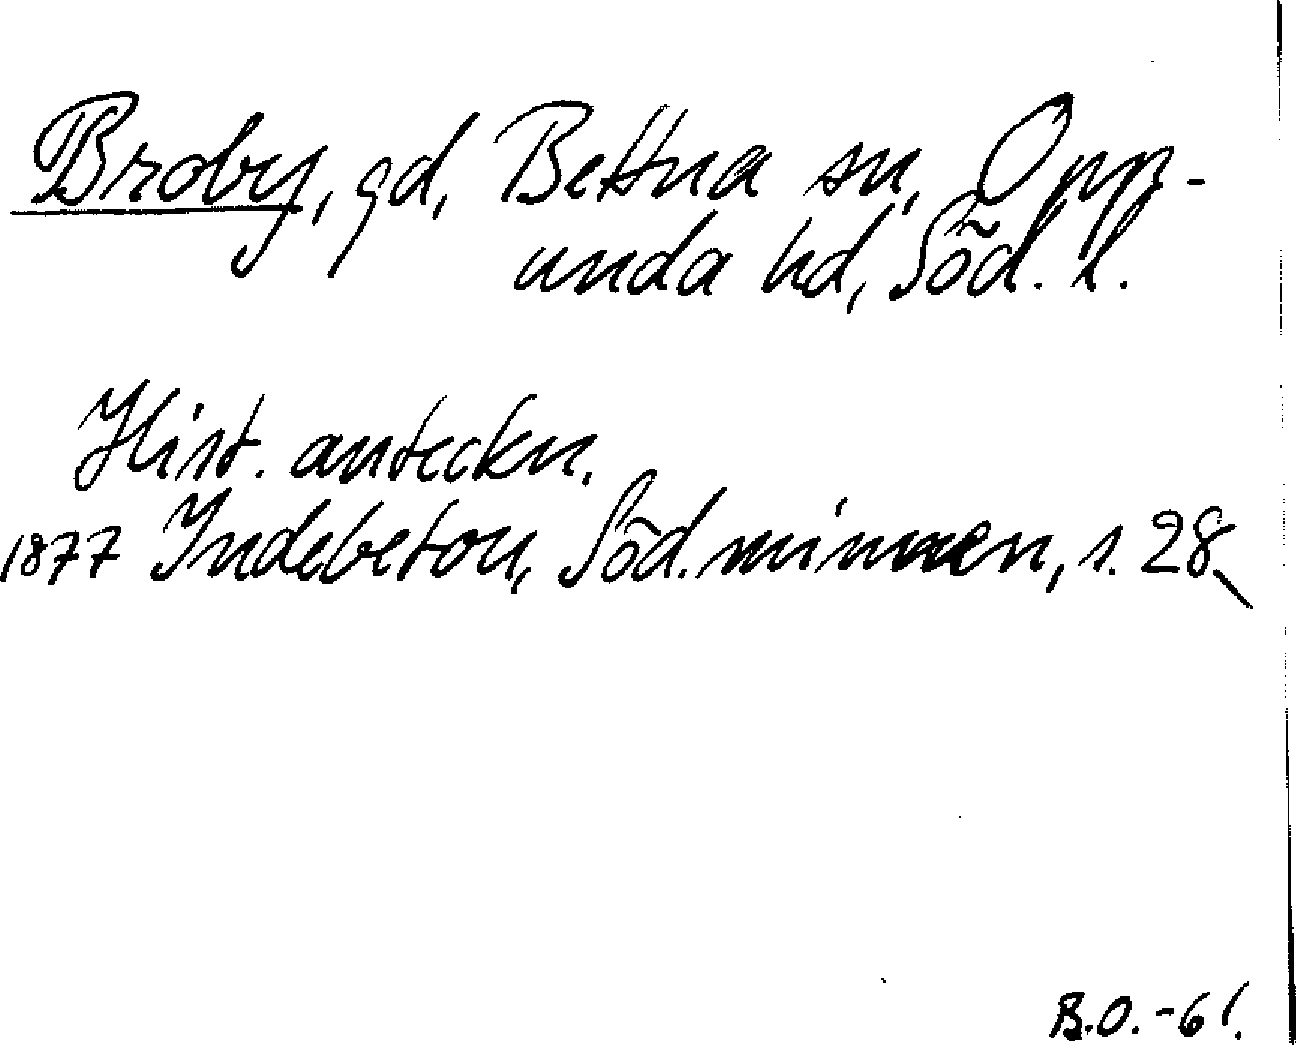 Broby, gd, Bettna sn, Opp-
unda hd, Söd. l.
Hist. anteckn.
1877 Indebetou, Söd. minnen, s. 28
B.O. -61.